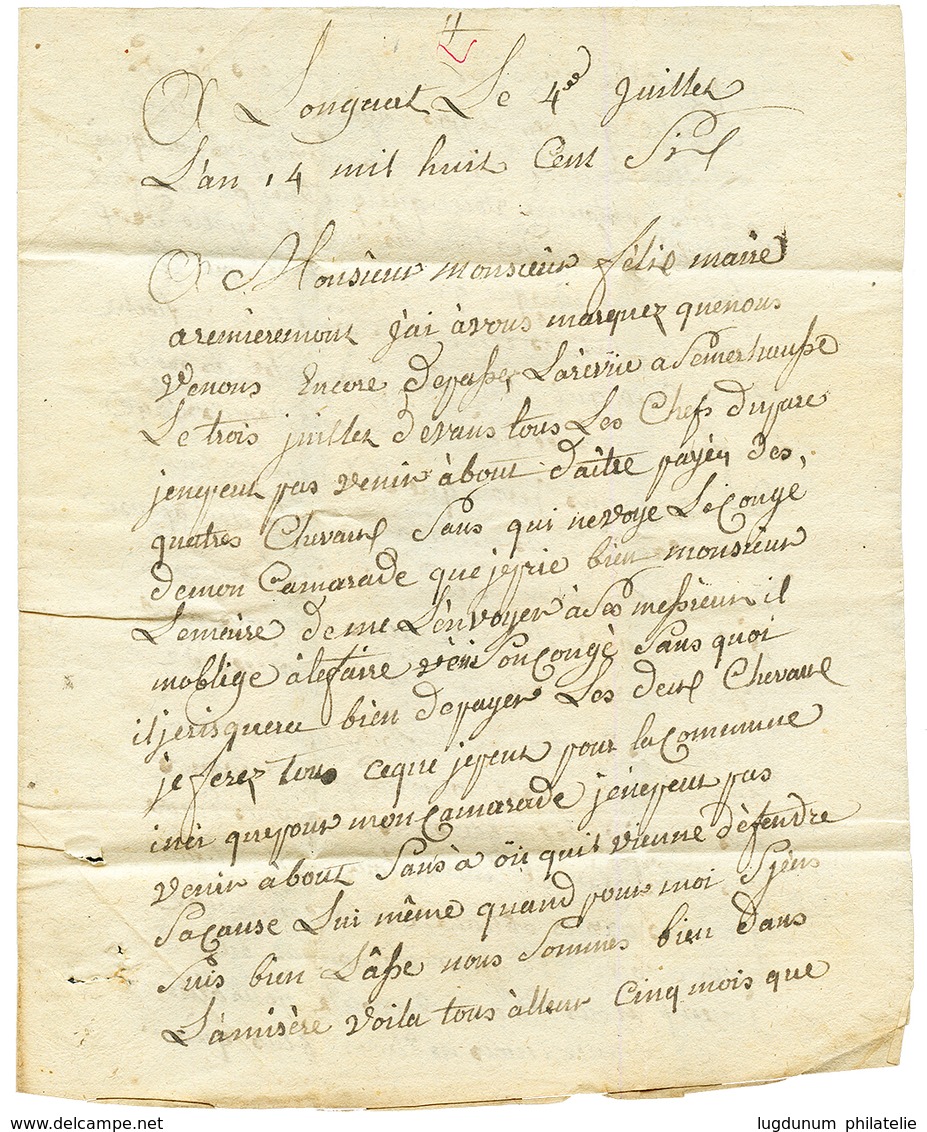 A Longuat Le 4ee Juillet
L'an 14 mil huit Cent Six
A Monsieur monsieur félix maire
aremieremont j'ai à vous marquez quenous
venons Encore depasser Larévue
Le trois juillet devans tous Les Chefs duparc
jenepeut pas venir à bout daître payéz des
quatres Chevaux Sans qui nevoye Le Conge
demon Camarade que jeprie bien monsieur
Lemeire de me L'envoyer à Ses messieur il
moblige àlefaire Son Congé Sans quoi
il jerisquera bien depayer Les deux Chevaux
je ferez tous ceque jepeut pour la Comemune
inci quepour mon Camarade jenepeut pas
venir à bout Sans quil vienne défendre
Sa Cause Lui même quand pour moi Sjéns
Suis bien L'âsse nous Sommes bien dans
L'amisère voila tous àlleur Cinq mois que
www.delcampe.net
lugdunum philatelie